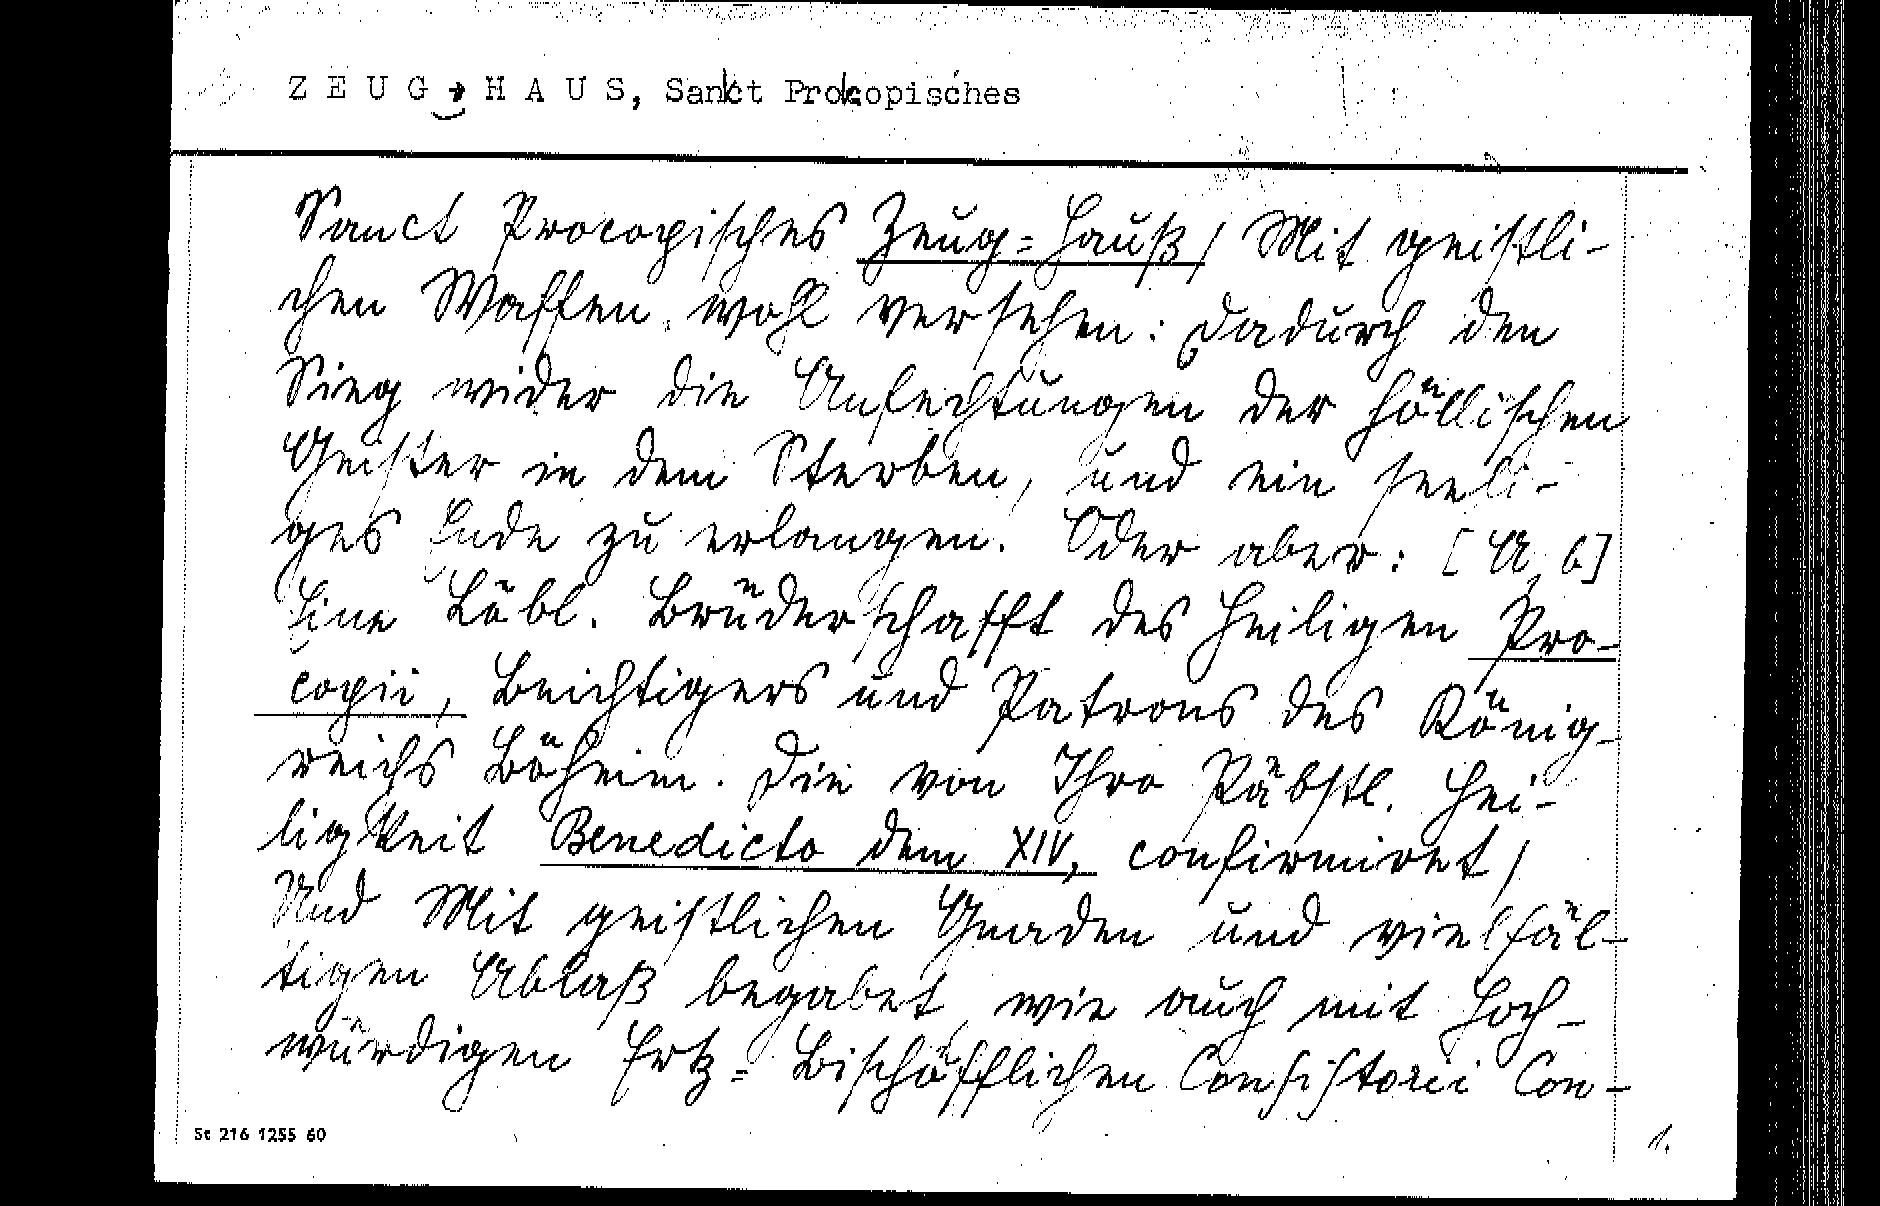 ZEUG-HAUS, Sankt Prokopisches
Sanct Procopisches Zeug=Hauß / Mit geistli-
chen Waffen wohl versehen: Dadurch den
Sieg wider die Anfechtungen der höllischen
Geister in dem Sterben, und ein seeli-
ges Ende zu erlangen. Oder aber: [A 6]
Eine Löbl. Bruderschafft des Heiligen Pro-
copii, Beichtigers und Patrons des König-
reichs Böheim. Die von Ihro Päbstl. Hei-
ligkeit Benedicto dem XIV, confirmiret /
Und Mit geistlichen Gnaden und vielfäl-
tigen Ablaß begabet, wie auch mit Hoch-
würdigen Ertz=Bischöfflichen Consistorii Con-
St 216 1255 60
1.